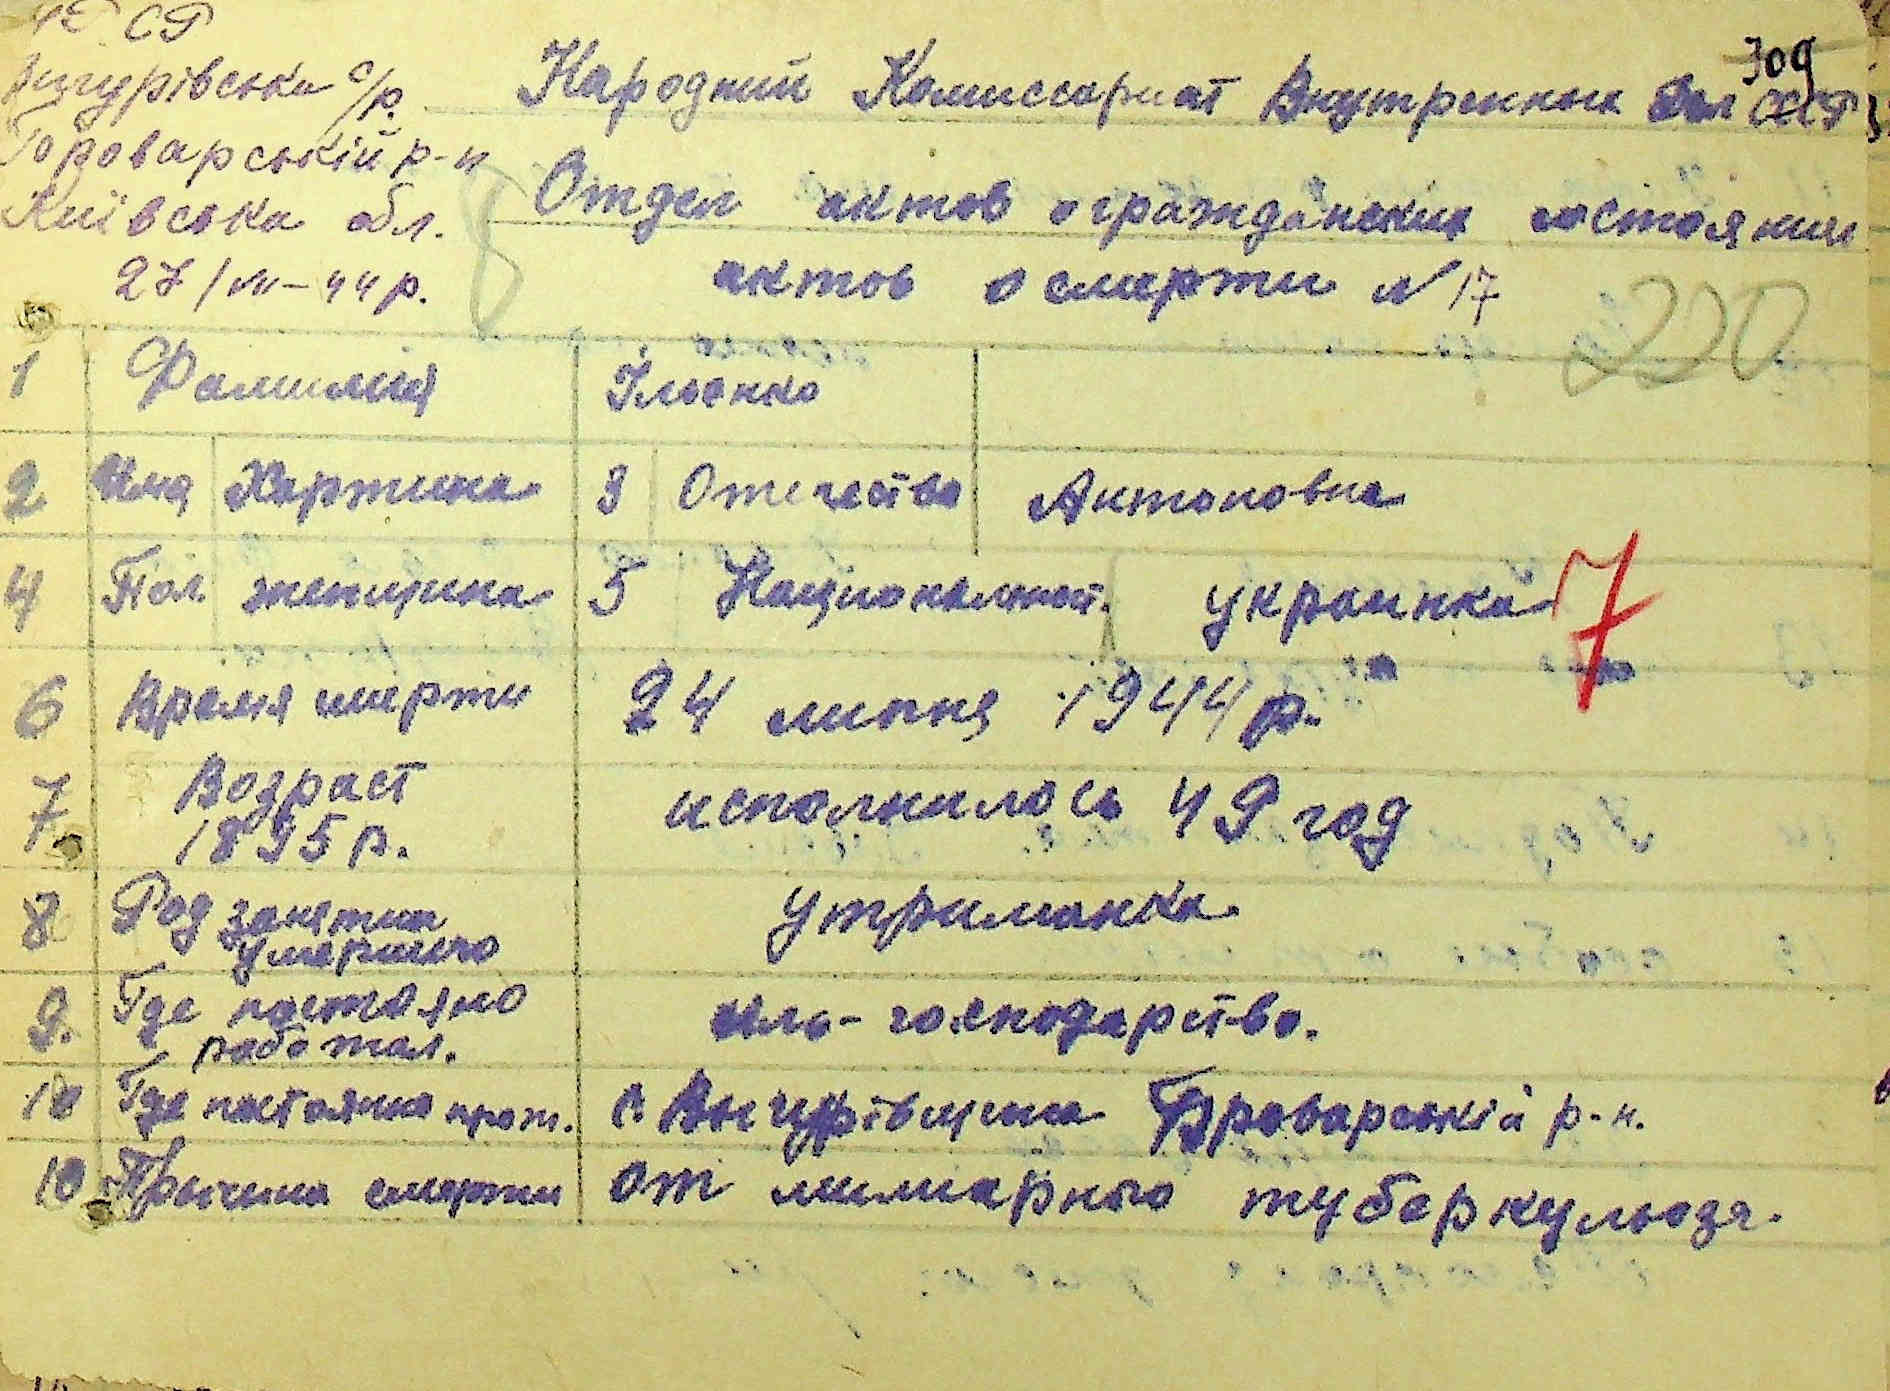 УРСР
Вигурівська с/р.
Броварський р-н
Київська обл.
27/VII-44р.
309
Народний Комиссариат Внутренних Дел СССР
Отдел актов о гражданских состояний
актов о смерти N 17
220
1 Фамилия Ільєнко
2 Имя Хартина 3 Отечество Антоновна
4 Пол женщина 5 Националност. украинка
7
6 Время смерти 24 липня 1944 р.
7 Возраст исполнилось 49 год
1895 р.
8 Род занятия утриманка
умершого
9. Где постояно иль-господарство.
работал.
10 Где постояно прож. с. Вигурівщина Броварській р-н.
10 Причина смерти от милиарного туберкульоза.